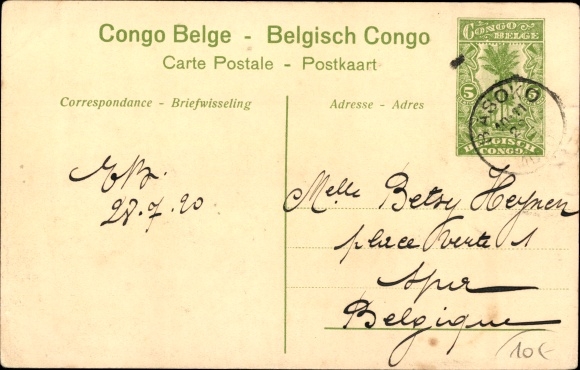 Congo Belge - Belgisch Congo
Carte Postale - Postkaart
CONGO BELGE
5
BELGISCH CONGO
BASOKO
Correspondance - Briefwisseling
Adresse - Adres
28.7.20
Melle Betsy Heynen
place verte 1
Spa
Belgique
10€